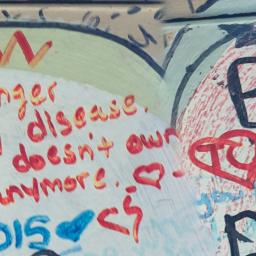 nger
disease.
doesn't own
nymore.
015